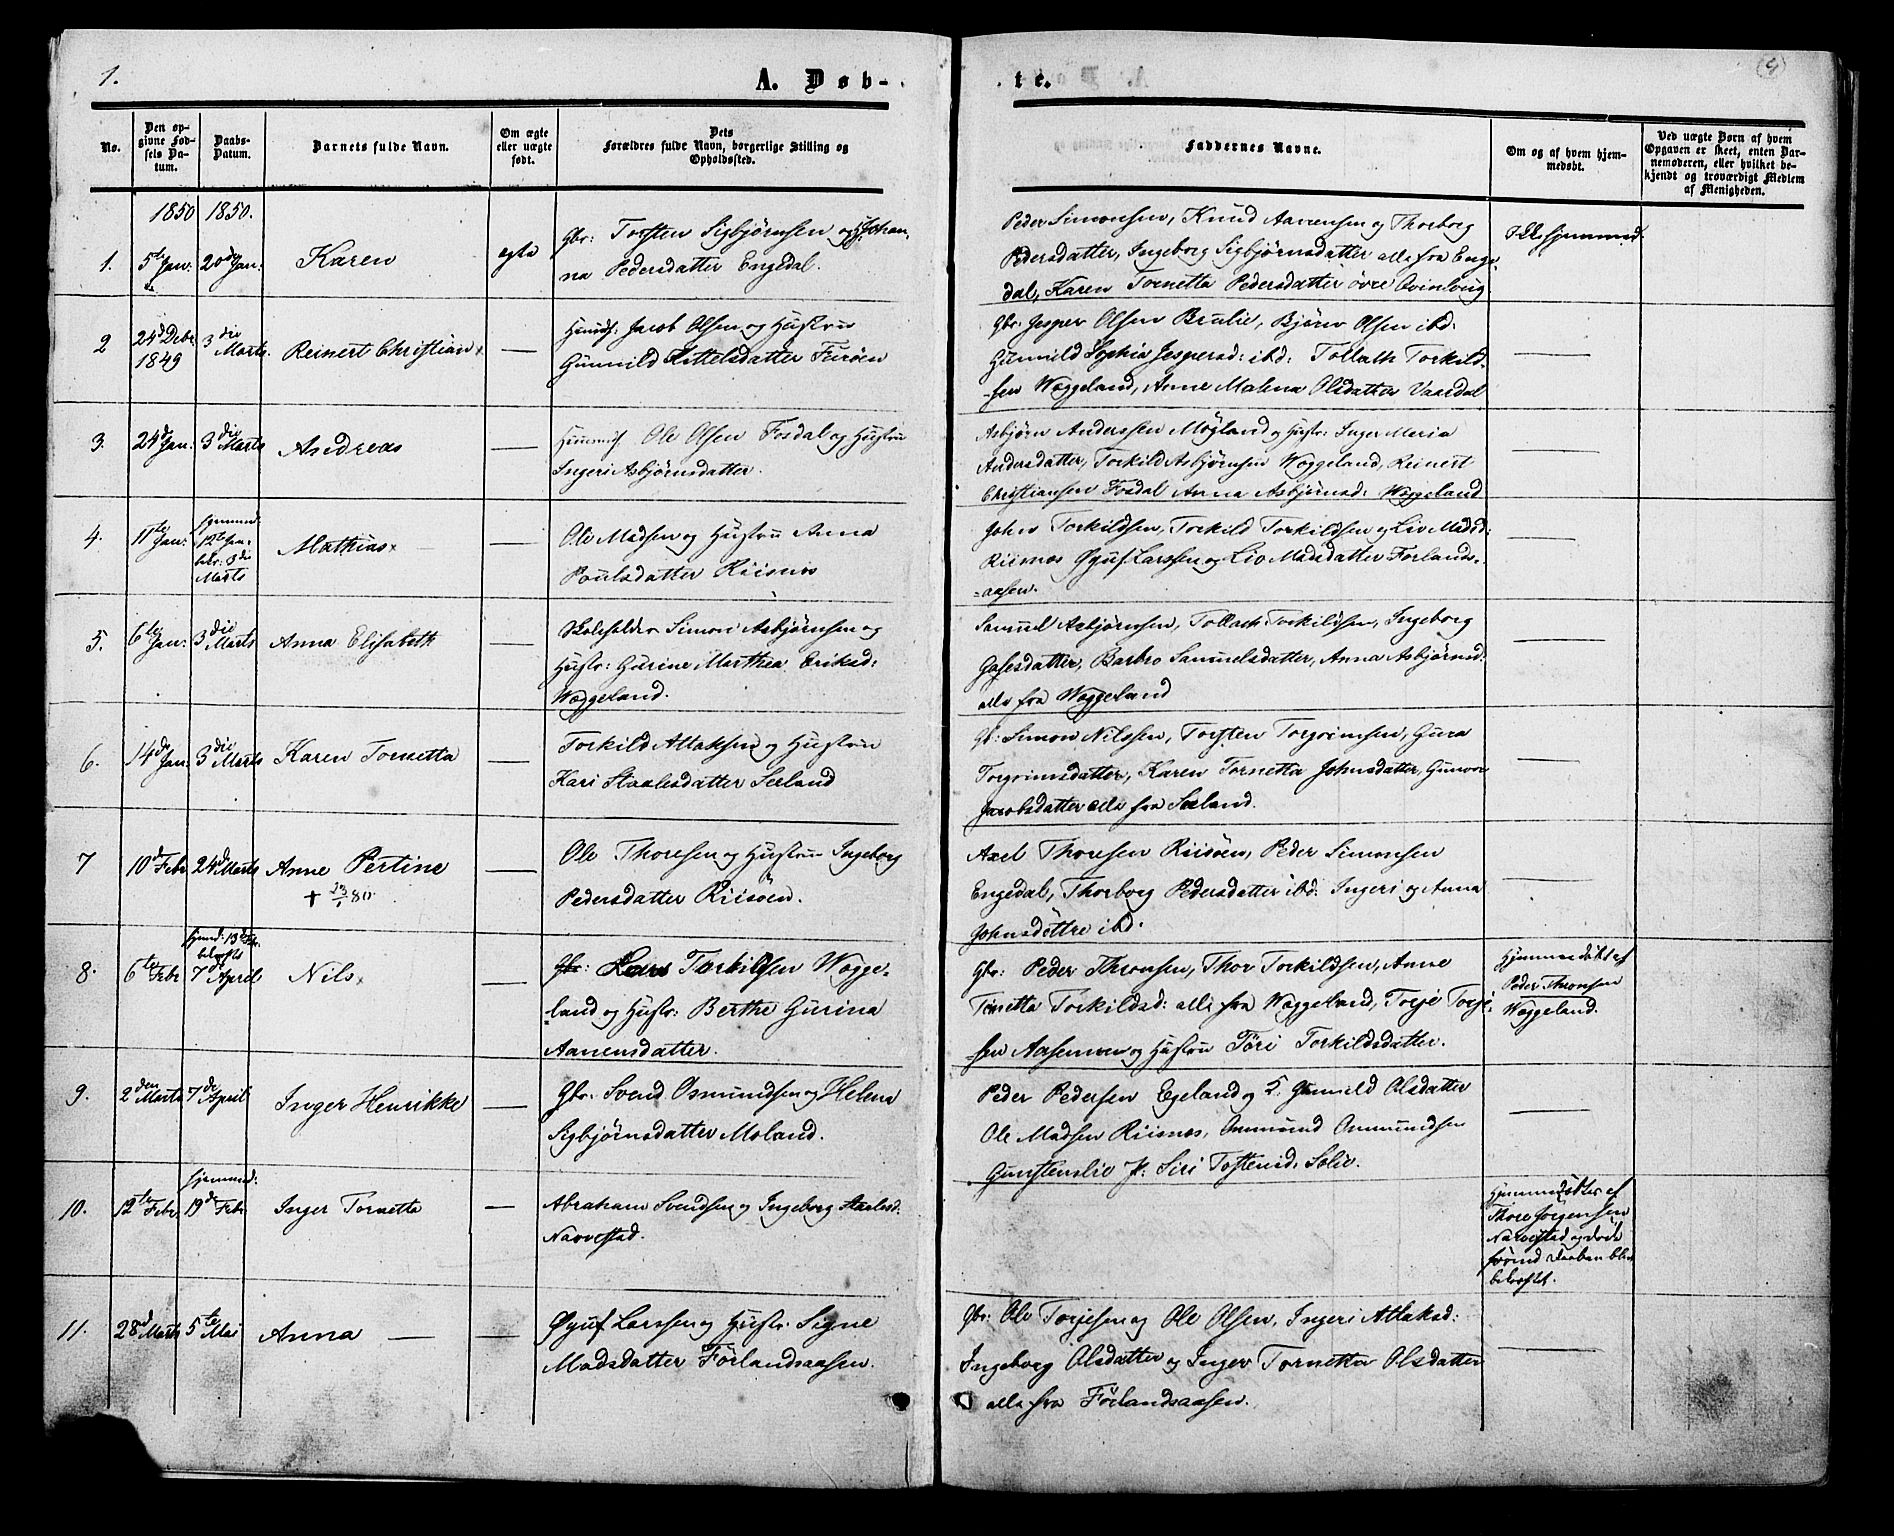 1.
A. Døb-
te.
(4)
No.
Den op-
givne Fød-
sels Da-
tum.
Daabs-
Datum.
Barnets fulde Navn.
Om ægte
eller uægte
født.
Dets
Forældres fulde Navn, borgerlige Stilling og
Opholdssted.
Faddernes Navne.
Om og af hvem hjem-
medøbt.
Ved uægte Børn af hvem
Opgaven er skeet, enten Bar-
nemoderen, eller hvilket be-
kjendt og troværdigt Medlem
af Menigheden.
1850 1850.
1.
5te Jan:
20de Jan:
Karen
egta
Gbr: Torsten Sigbjørnsen og Johan-
na Pedersdatter Engedal.
Peder Simonsen, Knud Aanensen og Thorborg
Pedersdatter, Ingeborg Sigbjørnsdatter alle fra Enge-
dal, Karen Tornetta Pedersdatter øvre
Ikke hjemmed:
2
24d Debr
1849
3die
Marts
Reinert Christian
Huusm: Jacob Olsen og Hustrue
Gunnild Kittelsdatter
Gbr: Jesper Olsen Brulie, Bjørn Olsen ibd:
Gunnild Sophia Jespersd: ibd: Tollath Torkild-
sen Wæggeland, Anne Malena Olsdatter
3.
24d Jan:
3die Marts
Andreas
Huusmd Ole Olsen Fosdal og Hustru
Ingeri Asbjørnsdatter.
Asbjørn Anderssen Møgland og Hustr: Inger Maria
Andersdatter, Torkild Asbjørnsen Wæggeland, Reinert
Christiansen Fosdal Anna Asbjørnsd: Wæggeland
4.
11te
Jan:
hjemmed:
12te Jan.
bekr: 3die
Marts
Mathias
Ole Madsen og Hustru Anna
Poulsdatter Riisnes
John Torkildsen, Torkild Torkildsen og Liv Madsd:
Riisnes Gjuf Larssen og Liv Madsdatter Førlands-
-aasen.
5.
6te
Jan:
3die
Marts
Anna Elisabeth
Skoleholder Simon Asbjørnsen og
Hustr: Gurine Marthea Eriksd:
Wæggeland.
Samuel Asbjørnsen, Tollath Torkildsen, Ingeborg
Barbro Samuelsdatter, Anna Asbjørnsd:
alle fra Wæggeland
6.
14d
Jan:
3die Marts
Karen Tornetta
Torkild Atlaksen og Hustru
Kari Staalesdatter Seland
Gbr: Simon Nilssen, Torsten Torgrimsen, Gura
Torgrimsdatter, Karen Tornetta Johnsdatter, Gunvor
Jacobsdatter alle fra Seland.
7
10d Febr
24d Marts
Anne Pertine
+ 13/1 80.
Ole Thoresen og Hustrue Ingeborg
Pedersdatter Riisøen.
Axel Thoresen Riisøen, Peder Simonsen
Engedal, Thorborg Pedersdatter ibd. Ingeri og Anna
Johnsdøttre ibd.
8.
6te Febr
hjemd: 13d Feb.
bekræft
7d April
Nils
Gbr: Lars Torkildsen Wægge-
land og Hustr: Berthe Gurina
Aanensdatter.
Gbr: Peder Thronsen, Thor Torkildsen, Anne
Tonetta Torkildsd: alle fra Wæggeland, Torje Torje-
sen Aasemoen og Hustru Tøri Torkildsdatter.
Hjemmedøbt af
Peder Thronsen
Wæggeland.
9.
2den
Marts
7de
April
Inger Henrikke
Gbr. Svend Osmundsen og Helena
Sigbjørnsdatter Moland.
Peder Pedersen Egeland og Gunvild Olsdatter
Ole Madsen Riisnes, Ommund Ommundsen
Gunstenslie Siri Tostensd: Solie.
10.
12te Febr.
hjemmed:
19d Febr.
Inger Tornetta
Abraham Svendsen og Ingeborg Staalesd.
Narvestad.
Hjemmedøbt af
Thore Jørgensen
Narvestad og døde
førend Daaben blev
bekræftet.
11.
28d Marts
5te Mai
Anna
Gjuf Larssen og Hustr. Signe
Madsdatter Førlandsaasen.
Gbr: Ole Torjesen og Ole Olsen, Ingeri Atlaksd:
Ingeborg Olsdatter og Inger Tornetta Olsdatter
alle fra Førlandsaasen.